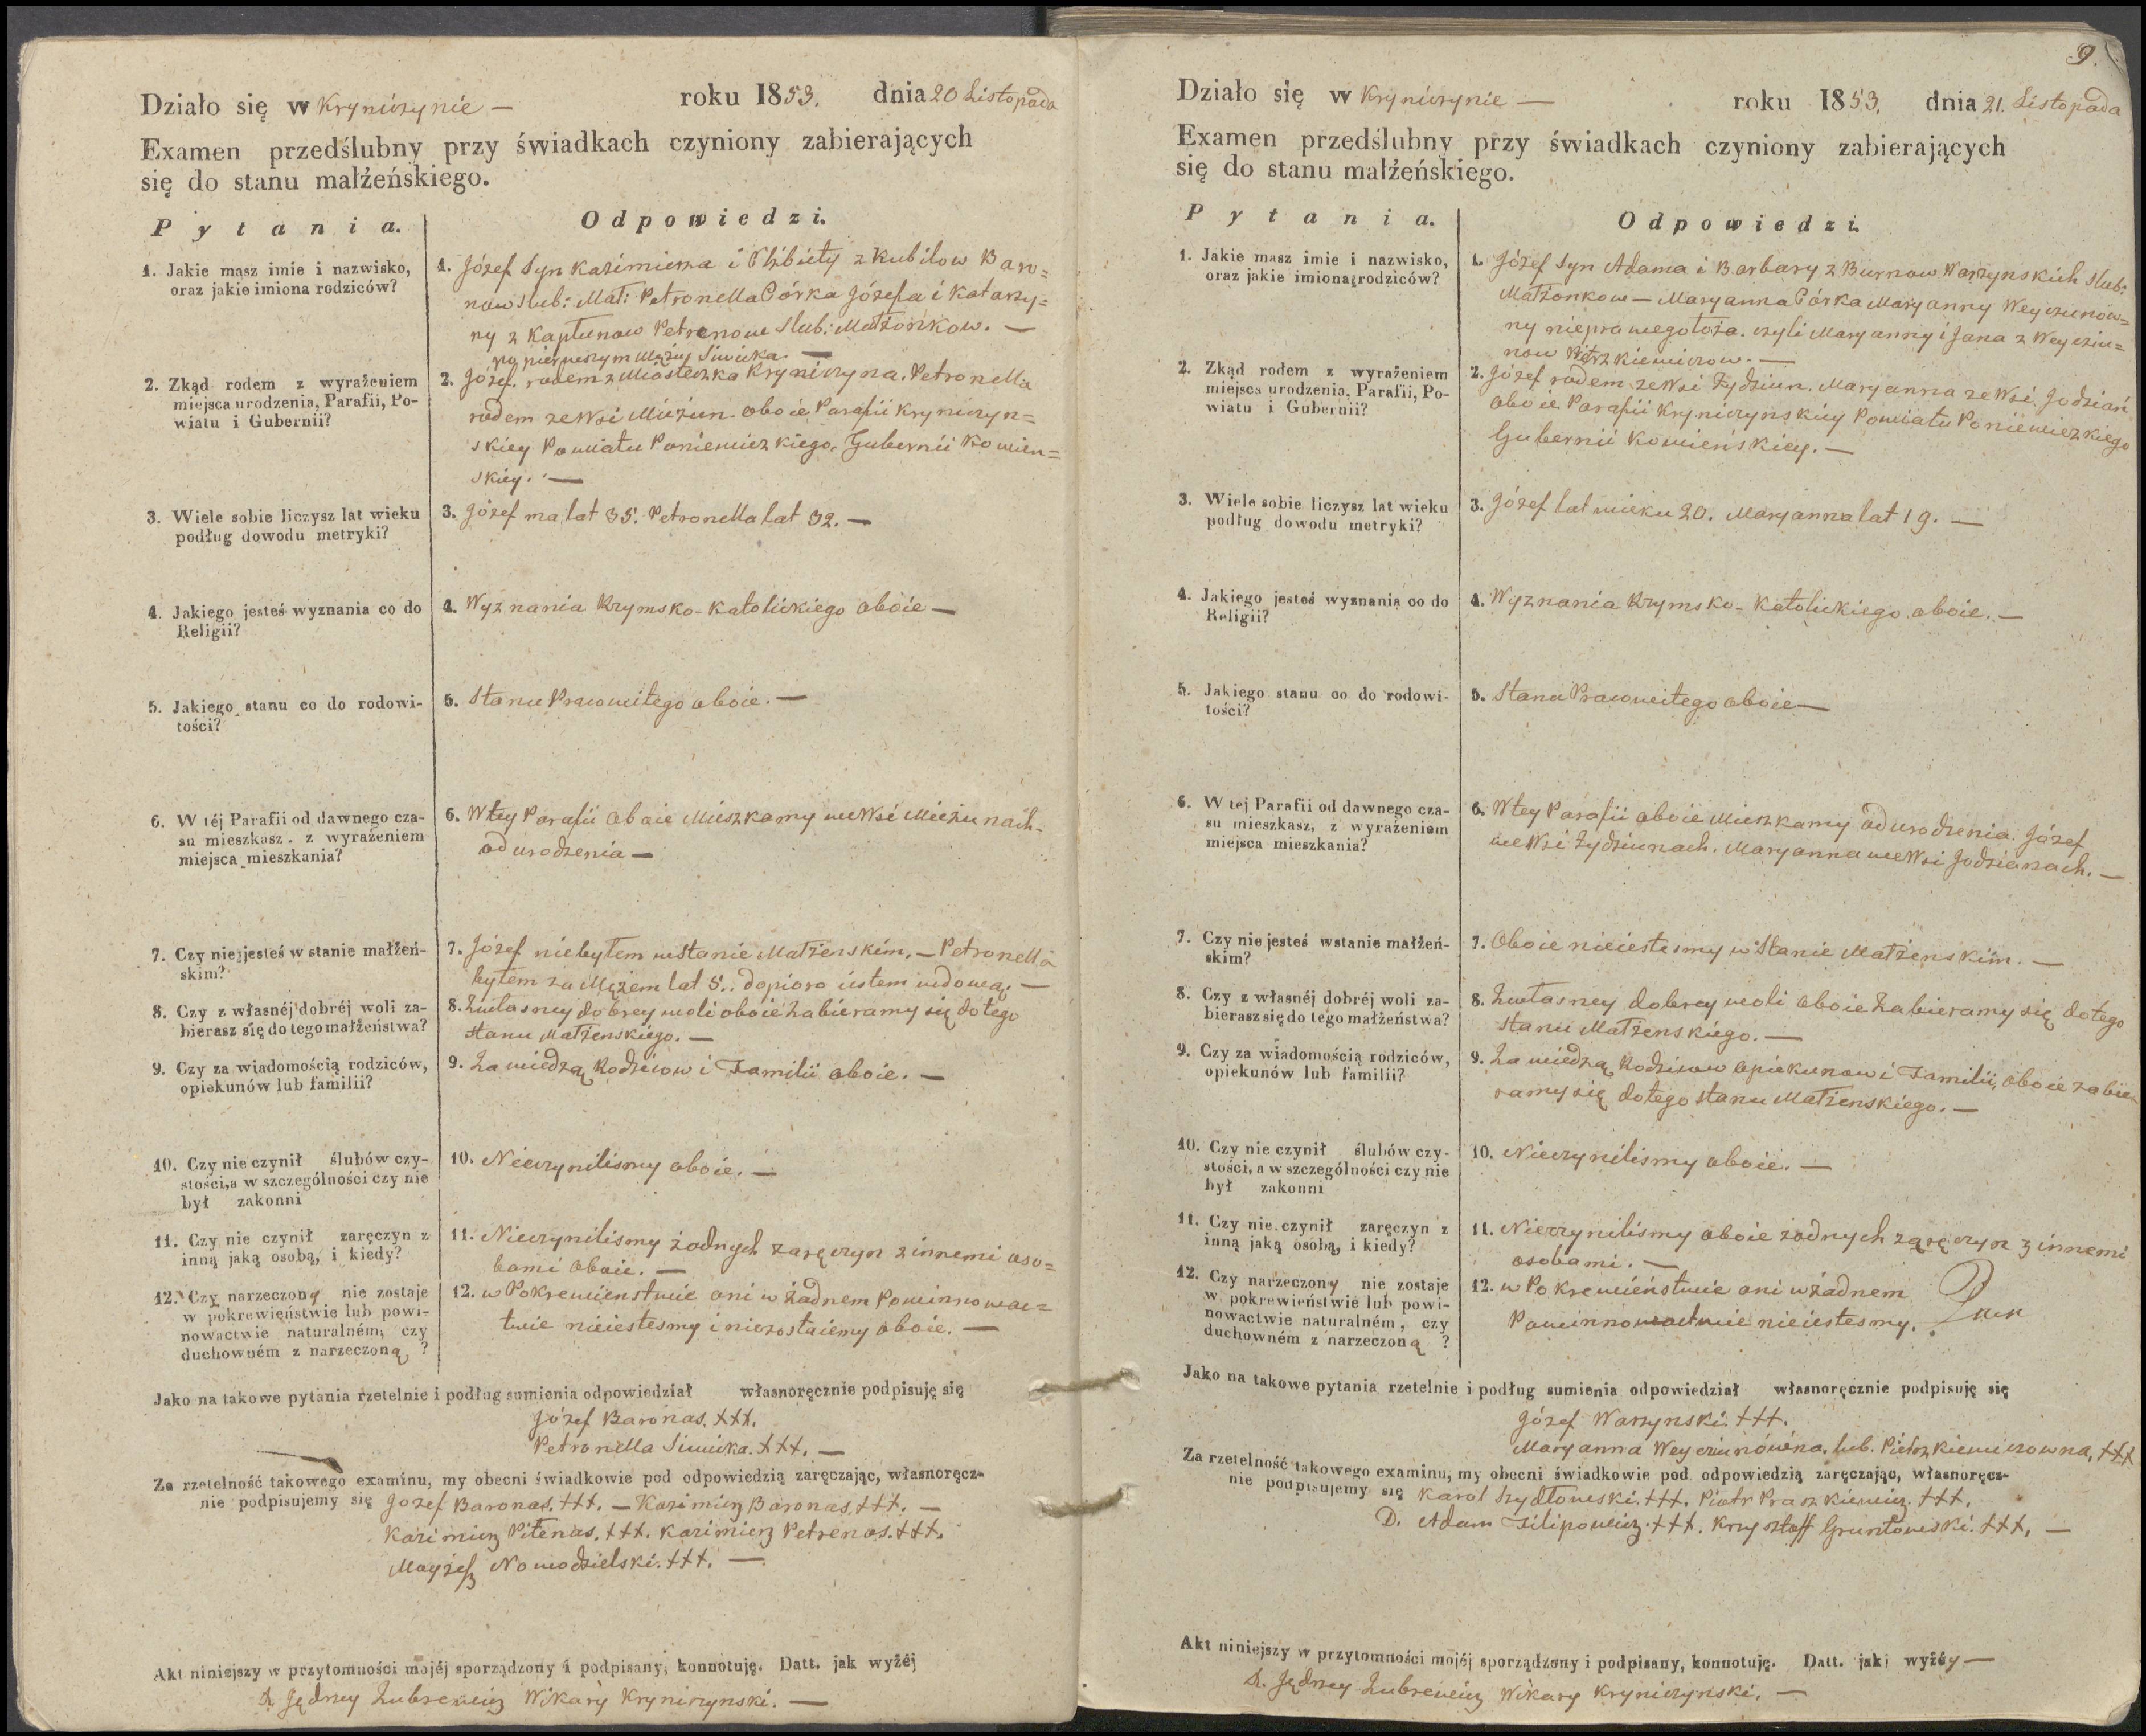 Działo się w Kryniczynie — roku 1853. dnia 20 Listopada
Examen przedślubny przy świadkach czyniony zabierających
się do stanu małżeńskiego.
Pytania.
Odpowiedzi.
1. Jakie masz imie i nazwisko,
oraz jakie imiona rodziców?
1. Józef Syn Kazimierza i Elżbiety z Kubilow Baro=
now slub: Mał: Petronella Córka Józefa i Katarzy=
ny z Kaptunow Petrenow Slub: Małżonkow. —
po pierwszym Mężu Siwicka. —
2. Zkąd rodem z wyrażeniem
miejsca urodzenia, Parafii, Po-
wiatu i Gubernii?
2. Józef. rodem z Miasteczka Kryniczyna. Petronella
rodem ze Wsi Mieżun. oboie Parafii Kryniczyn=
skiey Powiatu Poniewiezkiego, Gubernii Kowien=
skiey. —
3. Wiele sobie liczysz lat wieku
podług dowodu metryki?
3. Józef ma lat 35. Petronella lat 32. —
4. Jakiego jesteś wyznania co do
Religii?
4. Wyznania Rzymsko-Katolickiego oboie —
5. Jakiego stanu co do rodowi-
tości?
5. Stanu Prawowitego oboie. —
6. W téj Parafii od dawnego cza-
su mieszkasz, z wyrażeniem
miejsca mieszkania?
6. W tey Parafii oboie Mieszkamy we Wsi Mieżunach
od urodzenia —
7. Czy nie jesteś w stanie małżeń-
skim?
7. Józef niebyłem w Stanie Małżenskim. — Petronella
byłem za Mężem lat 5.. dopioro iestem wdową. —
8. Czy z własnéj dobréj woli za-
bierasz się do tego małżeństwa?
8. Zwłasney dobrey woli oboie zabieramy się do tego
stanu Małżenskiego. —
9. Czy za wiadomością rodziców,
opiekunów lub familii?
9. Za wiedzą Rodzicow i Familii oboie. —
10. Czy nie czynił ślubów czy-
stości, a w szczególności czy nie
był zakonni
10. Nieczynilismy oboie. —
11. Czy nie czynił zaręczyn z
inną jaką osobą, i kiedy?
11. Nieczynilismy żadnych zaręczyn z innemi oso=
bami oboie. —
12. Czy narzeczony nie zostaje
w pokrewieństwie lub powi-
nowactwie naturalném, czy
duchowném z narzeczoną ?
12. w Pokrewienstwie ani w Żadnem Powinnowac=
twie nieiestesmy i niezostaiemy oboie. —
Jako na takowe pytania rzetelnie i podług sumienia odpowiedział własnoręcznie podpisuję się
Józef Baronas. +++.
Petronella Siwicka. +++. —
Za rzetelność takowego examinu, my obecni świadkowie pod odpowiedzią zaręczając, własnoręcz-
nie podpisujemy się Jozef Baronas. +++. — Kazimierz Baronas. +++. —
Kazimierz Piłenas. +++. Kazimierz Petrenas. +++.
Nowodzielski. +++. —
Akt niniejszy w przytomności mojéj sporządzony i podpisany, konnotuję. Datt. jak wyżéj
X. Jędrzey Zubrewicz Wikary Kryniczynski. —
9.
Działo się w Kryniczynie — roku 1853. dnia 21. Listopada
Examen przedślubny przy świadkach czyniony zabierających
się do stanu małżeńskiego.
Pytania.
Odpowiedzi.
1. Jakie masz imie i nazwisko,
oraz jakie imiona rodziców?
1. Józef Syn Adama i Barbary z Burnow Warzynskich slub:
Małżonkow — Maryanna Córka Maryanny Weyczunow=
ny nieprawego łoża. czyli Maryanny i Jana z Weycziu=
now Pietrzkiewiczow. —
2. Zkąd rodem z wyrażeniem
miejsca urodzenia, Parafii, Po-
wiatu i Gubernii?
2. Józef rodem ze Wsi Żydziun. Maryanna ze Wsi Jodzian
oboie Parafii Kryniczynskiey Powiatu Poniewiezkiego
Gubernii Kowieńskiey. —
3. Wiele sobie liczysz lat wieku
podług dowodu metryki?
3. Józef lat wieku 20. Maryanna lat 19. —
4. Jakiego jesteś wyznania co do
Religii?
4. Wyznania Rzymsko-Katolickiego oboie. —
5. Jakiego stanu co do rodowi-
tości?
5. Stanu Prawowitego oboie —
6. W tej Parafii od dawnego cza-
su mieszkasz, z wyrażeniem
miejsca mieszkania?
6. W tey Parafii oboie Mieszkamy od urodzenia. Józef
we Wsi Żydziunach. Maryanna we Wsi Jodzianach. —
7. Czy nie jesteś w stanie małżeń-
skim?
7. Oboie nieiestesmy w Stanie Małżenskim. —
8. Czy z własnéj dobréj woli za-
bierasz się do tego małżeństwa?
8. Zwłasney dobrey woli oboie Zabieramy się do tego
stanu Małżenskiego. —
9. Czy za wiadomością rodziców,
opiekunów lub familii?
9. Za wiedzą Rodzicow opiekunow i Familii, oboie zabie
ramy się do tego stanu Małżenskiego. —
10. Czy nie czynił ślubów czy-
stości, a w szczególności czy nie
był zakonni
10. Nieczynilismy oboie. —
11. Czy nie czynił zaręczyn z
inną jaką osobą, i kiedy?
11. Nieczynilismy oboie żadnych zaręczyn z innemi
osobami. —
12. Czy narzeczony nie zostaje
w pokrewieństwie lub powi-
nowactwie naturalném, czy
duchowném z narzeczoną ?
12. w Pokrewieństwie ani w żadnem
Powinnowactwie nieiestesmy.
Jako na takowe pytania rzetelnie i podług sumienia odpowiedział własnoręcznie podpisuję się
Józef Warzynski. +++.
Maryanna Weyczunówna. lub. Pietrzkiewiczowna, +++
Za rzetelność takowego examinu, my obecni świadkowie pod odpowiedzią zaręczając, własnoręcz-
nie podpisujemy się Karol Szydłowski. +++. Piotr Praszkiewicz. +++.
D. Adam Filipowicz. +++. Krzysztoff Gruntowski. +++. —
Akt niniejszy w przytomności mojéj sporządzony i podpisany, konnotuję. Datt. jak wyżéy —
X. Jędrzey Zubrewicz Wikary Kryniczynski. —